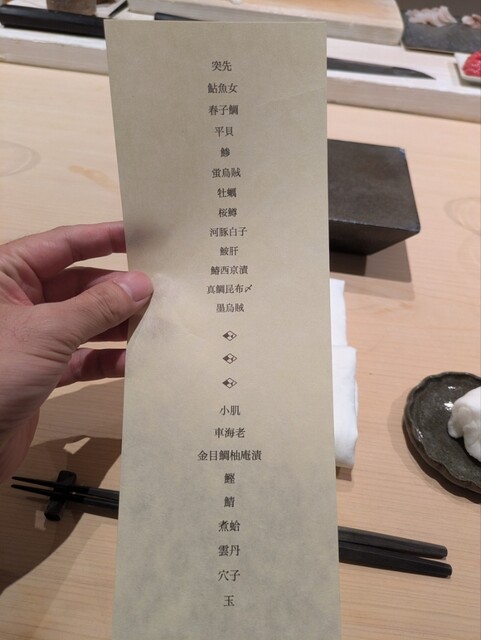 突先
鮎魚女
春子鯛
平貝
鯵
蛍烏賊
牡蠣
桜鱒
河豚白子
鮟肝
鰆西京漬
真鯛昆布〆
墨烏賊
小肌
車海老
金目鯛柚庵漬
鰹
鯖
煮蛤
雲丹
穴子
玉